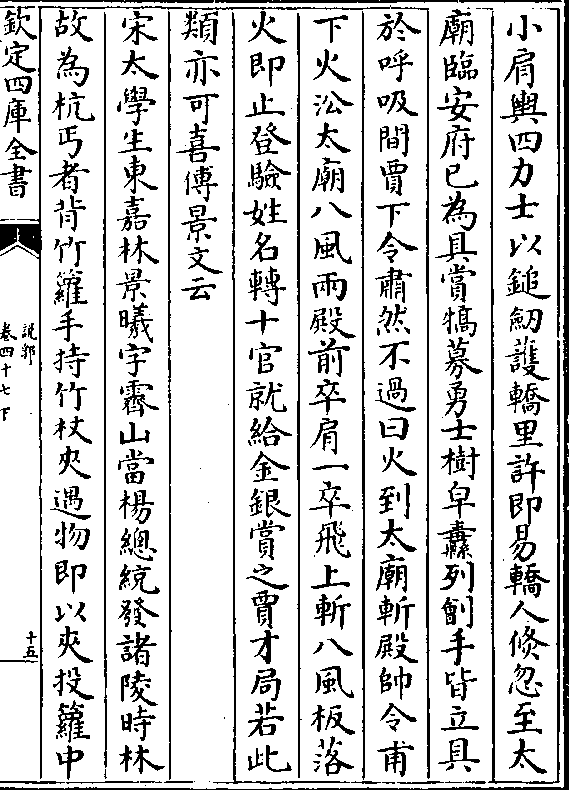 小肩輿四力士以鎚劒護轎里許即易轎人倐忽至太
廟臨安府已為具賞犒募勇士樹皁纛列劊手皆立具
於呼吸間賈下令肅然不過曰火到太廟斬殿帥令甫
下火㳂太廟八風兩殿前卒肩一卒飛上斬八風板落
火即止登驗姓名轉十官就給金銀賞之賈才局若此
類亦可喜傅景文云
宋太學生東嘉林景曦字霽山當楊總統發諸陵時林
故為杭丐者背竹籮手持竹杖夾遇物即以夾投籮中
欽定四庫全書
說郛
卷四十七下
十五